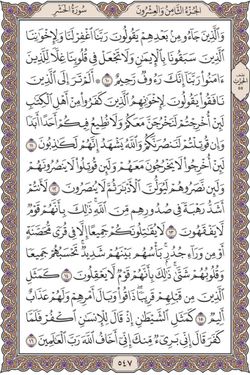 سُورَةُ الحَشْرِ
الجُزْءُ الثَّامِنُ وَالعِشْرُونَ
وَٱلَّذِينَ جَآءُو مِنۢ بَعْدِهِمْ يَقُولُونَ رَبَّنَا ٱغْفِرْ لَنَا وَلِإِخْوَٰنِنَا
ٱلَّذِينَ سَبَقُونَا بِٱلْإِيمَٰنِ وَلَا تَجْعَلْ فِى قُلُوبِنَا غِلًّا لِّلَّذِينَ
ءَامَنُوا۟ رَبَّنَآ إِنَّكَ رَءُوفٌ رَّحِيمٌ ۝١٠ أَلَمْ تَرَ إِلَى ٱلَّذِينَ
نَافَقُوا۟ يَقُولُونَ لِإِخْوَٰنِهِمُ ٱلَّذِينَ كَفَرُوا۟ مِنْ أَهْلِ ٱلْكِتَٰبِ
لَئِنْ أُخْرِجْتُمْ لَنَخْرُجَنَّ مَعَكُمْ وَلَا نُطِيعُ فِيكُمْ أَحَدًا أَبَدًا
وَإِن قُوتِلْتُمْ لَنَنصُرَنَّكُمْ وَٱللَّهُ يَشْهَدُ إِنَّهُمْ لَكَٰذِبُونَ ۝١١
لَئِنْ أُخْرِجُوا۟ لَا يَخْرُجُونَ مَعَهُمْ وَلَئِن قُوتِلُوا۟ لَا يَنصُرُونَهُمْ
وَلَئِن نَّصَرُوهُمْ لَيُوَلُّنَّ ٱلْأَدْبَٰرَ ثُمَّ لَا يُنصَرُونَ ۝١٢ لَأَنتُمْ
أَشَدُّ رَهْبَةً فِى صُدُورِهِم مِّنَ ٱللَّهِ ذَٰلِكَ بِأَنَّهُمْ قَوْمٌ
لَّا يَفْقَهُونَ ۝١٣ لَا يُقَٰتِلُونَكُمْ جَمِيعًا إِلَّا فِى قُرًى مُّحَصَّنَةٍ
أَوْ مِن وَرَآءِ جُدُرٍۭ بَأْسُهُم بَيْنَهُمْ شَدِيدٌ تَحْسَبُهُمْ جَمِيعًا
وَقُلُوبُهُمْ شَتَّىٰ ذَٰلِكَ بِأَنَّهُمْ قَوْمٌ لَّا يَعْقِلُونَ ۝١٤ كَمَثَلِ
ٱلَّذِينَ مِن قَبْلِهِمْ قَرِيبًا ذَاقُوا۟ وَبَالَ أَمْرِهِمْ وَلَهُمْ عَذَابٌ
أَلِيمٌ ۝١٥ كَمَثَلِ ٱلشَّيْطَٰنِ إِذْ قَالَ لِلْإِنسَٰنِ ٱكْفُرْ فَلَمَّا
كَفَرَ قَالَ إِنِّى بَرِىٓءٌ مِّنكَ إِنِّىٓ أَخَافُ ٱللَّهَ رَبَّ ٱلْعَٰلَمِينَ ۝١٦
٥٤٧